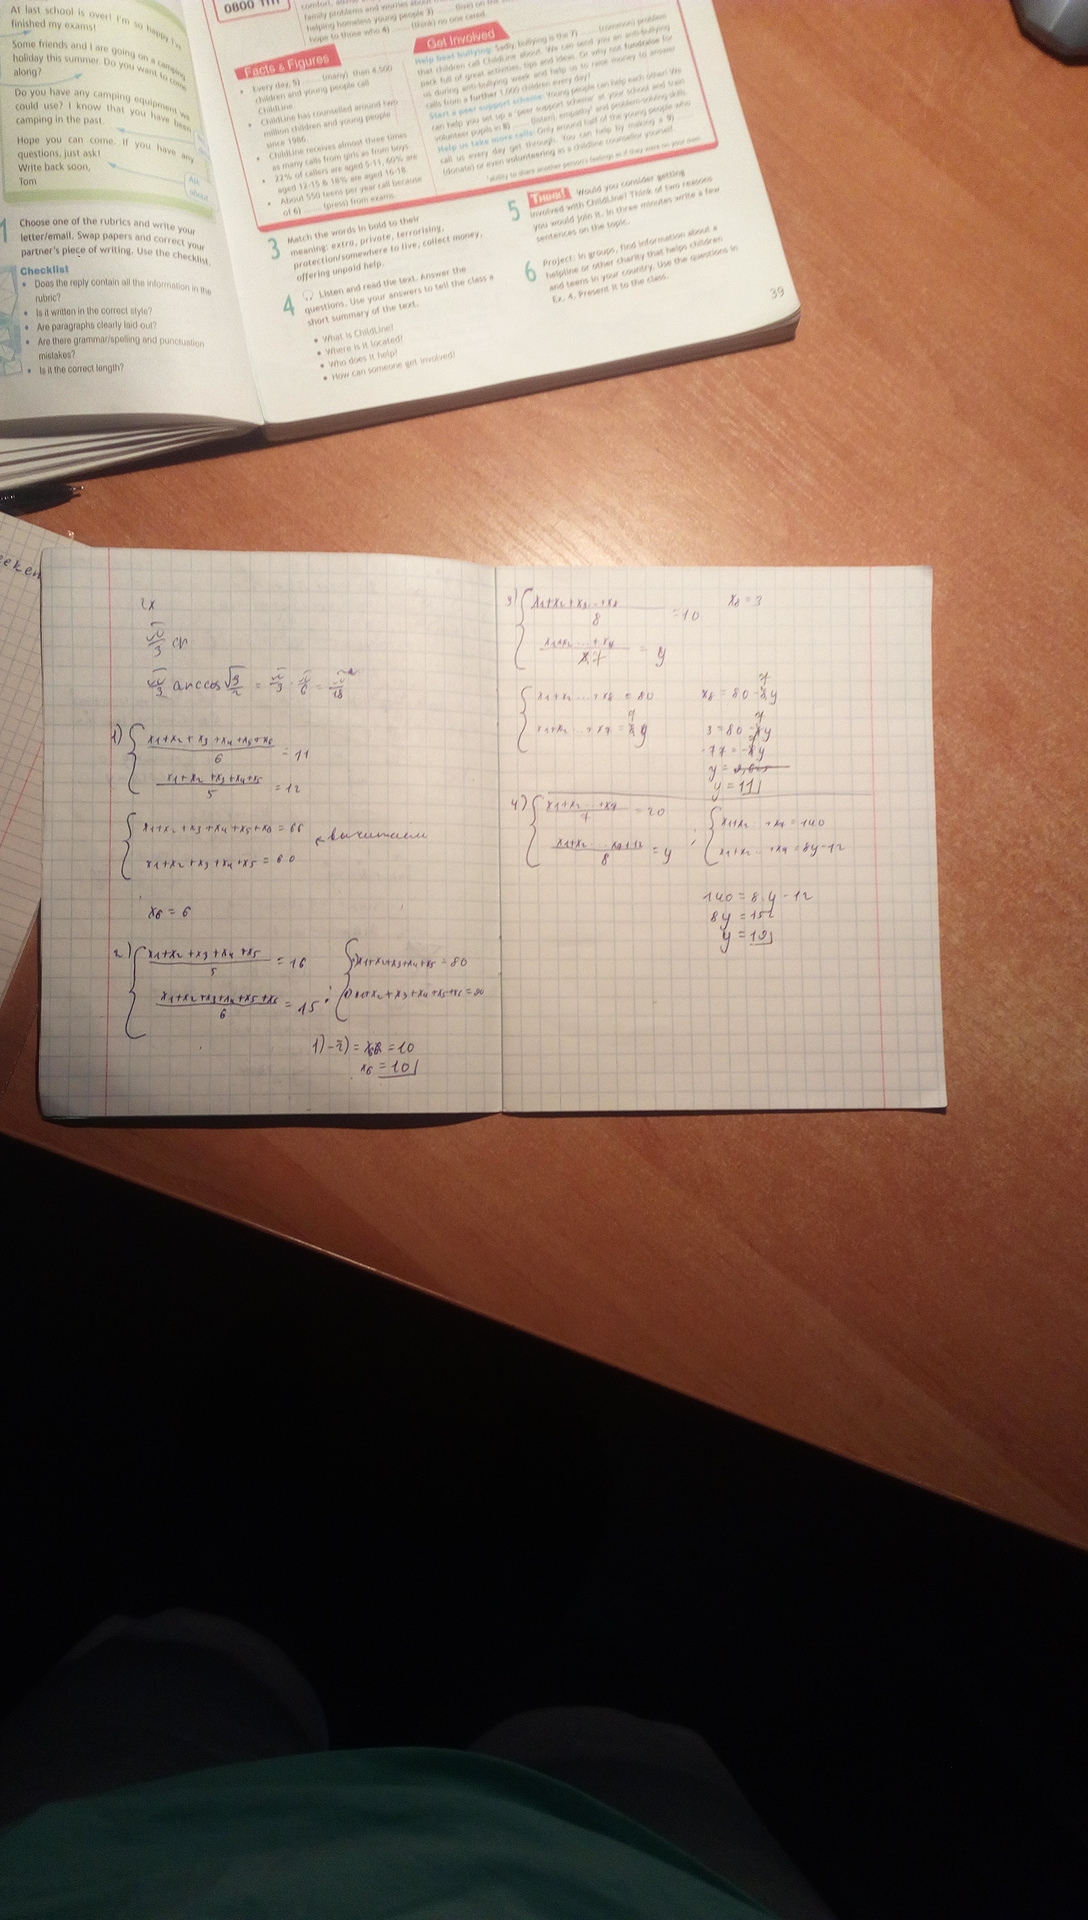 At last school is over! I'm so happy I've
finished my exams!
Some friends and I are going on a camping
holiday this summer. Do you want to come
along?
Do you have any camping equipment we
could use? I know that you have been
camping in the past.
Hope you can come. If you have any
questions, just ask!
Write back soon,
Tom
Ask
about
1 Choose one of the rubrics and write your
letter/email. Swap papers and correct your
partner's piece of writing. Use the checklist.
Checklist
• Does the reply contain all the information in the
rubric?
• Is it written in the correct style?
• Are paragraphs clearly laid-out?
• Are there grammar/spelling and punctuation
mistakes?
• Is it the correct length?
0800 1111
family problems and worries about
helping homeless young people 3)
hope to those who 4) ...... (think) no one cared.
Facts & Figures
• Every day, 5) ...... (many) than 4,500
children and young people call
ChildLine.
• ChildLine has counselled around two
million children and young people
since 1986.
• ChildLine receives almost three times
as many calls from girls as from boys.
• 22% of callers are aged 5-11, 60% are
aged 12-15 & 18% are aged 16-18.
• About 550 teens per year call because
of 6) ...... (press) from exams.
Get Involved
Help beat bullying: Sadly, bullying is the 7) ...... (common) problem
that children call ChildLine about. We can send you an anti-bullying
pack full of great activities, tips and ideas. Or why not fundraise for
us during anti-bullying week and help us to raise money to answer
calls from a further 1,000 children every day?
Start a peer support scheme: Young people can help each other! We
can help you set up a 'peer support scheme' at your school and train
volunteer pupils in 8) ...... (listen), empathy* and problem-solving skills.
Help us take more calls: Only around half of the young people who
call us every day get through. You can help by making a 9) ......
(donate) or even volunteering as a childline counsellor yourself.
*ability to share another person's feelings as if they were on your own
3 Match the words in bold to their
meaning: extra, private, terrorising,
protection/somewhere to live, collect money,
offering unpaid help.
4 Listen and read the text. Answer the
questions. Use your answers to tell the class a
short summary of the text.
• What is ChildLine?
• Where is it located?
• Who does it help?
• How can someone get involved?
5 THINK! Would you consider getting
involved with ChildLine? Think of two reasons
you would join it. In three minutes write a few
sentences on the topic.
6 Project: In groups, find information about a
helpline or other charity that helps children
and teens in your country. Use the questions in
Ex. 4. Present it to the class.
39
1) x1+x2+x3+x4+x5+x6 / 6 = 11
x1+x2+x3+x4+x5 / 5 = 12
x1+x2+x3+x4+x5+x6 = 66
x1+x2+x3+x4+x5 = 60
x6 = 6
2) x1+x2+x3+x4+x5 / 5 = 16
x1+x2+x3+x4+x5+x6 / 6 = 15
x1+x2+x3+x4+x5 = 80
x1+x2+x3+x4+x5+x6 = 90
x6 = 10
3) x1+x2+x3...+x8 / 8 = 10
x8 = 3
x1+x2...+x7 / 7 = y
x1+x2...+x8 = 80
x8 = 80-7y
x1+x2...+x7 = 7y
3 = 80-7y
-77 = -7y
y = 11
4) x1+x2...+x7 / 7 = 20
x1+x2...x7+12 / 8 = y
x1+x2...+x7 = 140
x1+x2...+x7 = 8y-12
140 = 8y-12
8y = 152
y = 19